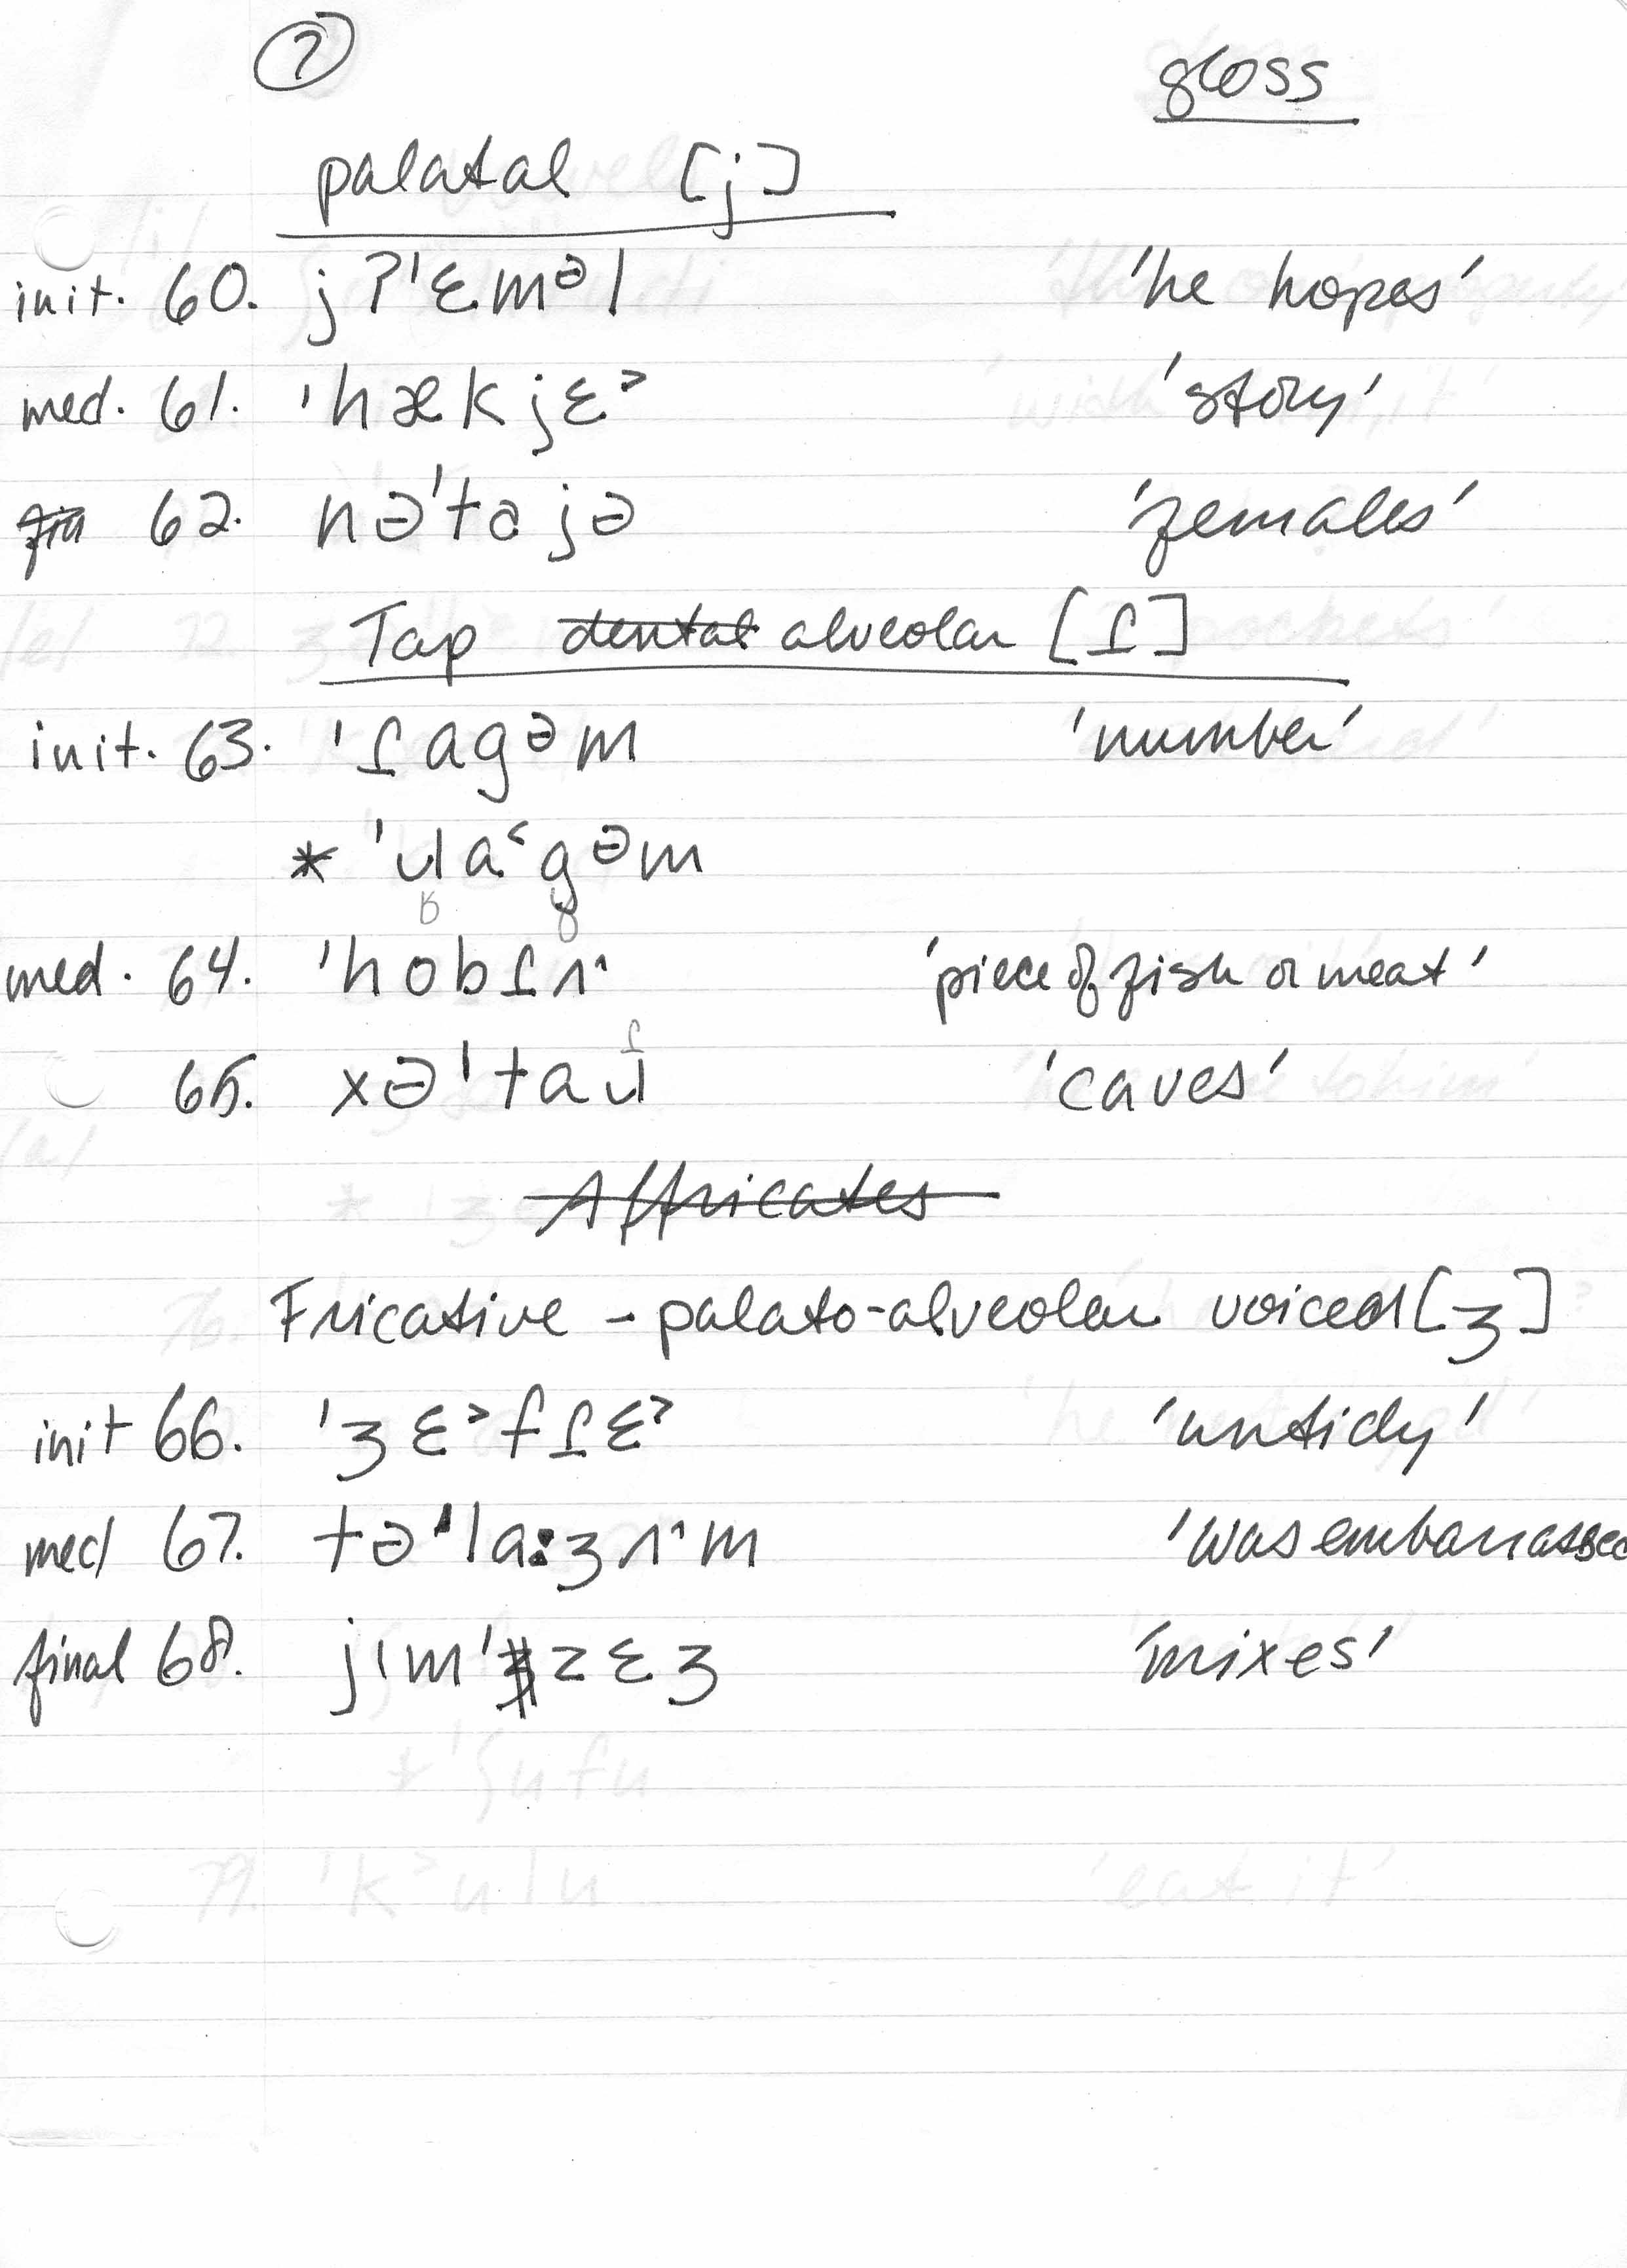 7 gloss
palatal [j]
init. 60. jʔˈɛmᵊl 'he hopes'
med. 61. ˈhækjɛ˃ 'story'
fin 62. nəˈtajə 'females'
Tap dental alveolar [ɾ]
init. 63. ˈɾagᵊm 'number'
* ˈɹa˂gᵊm
med. 64. ˈhobɾʌ˄ 'piece of fish or meat'
65. xəˈtaɹ 'caves'
Affricates
Fricative - palato-alveolar voiced [ʒ]
init 66. ˈʒɛ˃fɾɛ˃ 'untidy'
med 67. təˈla:ʒʌ˄m 'was embarrassed
final 68. jımˈzɛʒ 'mixes'